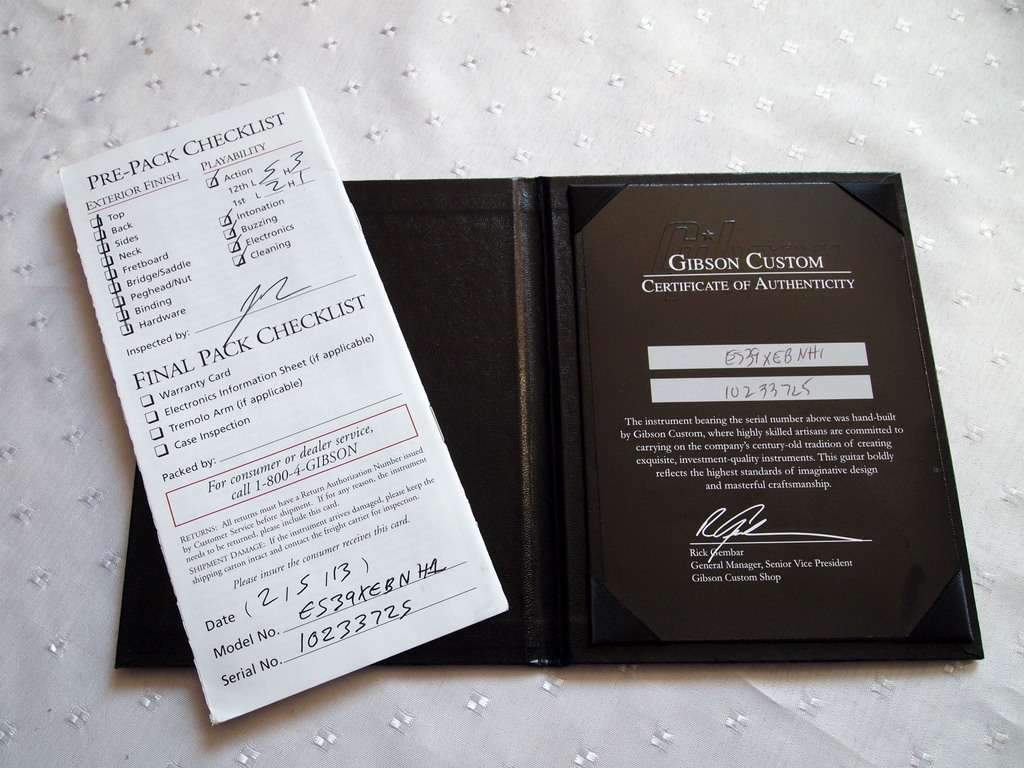 PRE-PACK CHECKLIST
EXTERIOR FINISH
Top
Back
Sides
Neck
Fretboard
Bridge/Saddle
Peghead/Nut
Binding
Hardware
PLAYABILITY
Action
12th L 5 H 3
1st L 2 H 1
Intonation
Buzzing
Electronics
Cleaning
Inspected by:
FINAL PACK CHECKLIST
Warranty Card
Electronics Information Sheet (if applicable)
Tremolo Arm (if applicable)
Case Inspection
Packed by:
For consumer or dealer service,
call 1-800-4-GIBSON
RETURNS: All returns must have a Return Authorization Number issued
by Customer Service before shipment. If for any reason, the instrument
needs to be returned, please include this card.
SHIPMENT DAMAGE: If the instrument arrives damaged, please keep the
shipping carton intact and contact the freight carrier for inspection.
Please insure the consumer receives this card.
Date 12/5/13
Model No. ES39XEBNH1
Serial No. 10233725
GIBSON CUSTOM
CERTIFICATE OF AUTHENTICITY
ES39XEBNH1
10233725
The instrument bearing the serial number above was hand-built
by Gibson Custom, where highly skilled artisans are committed to
carrying on the company's century-old tradition of creating
exquisite, investment-quality instruments. This guitar boldly
reflects the highest standards of imaginative design
and masterful craftsmanship.
Rick Gembar
General Manager, Senior Vice President
Gibson Custom Shop